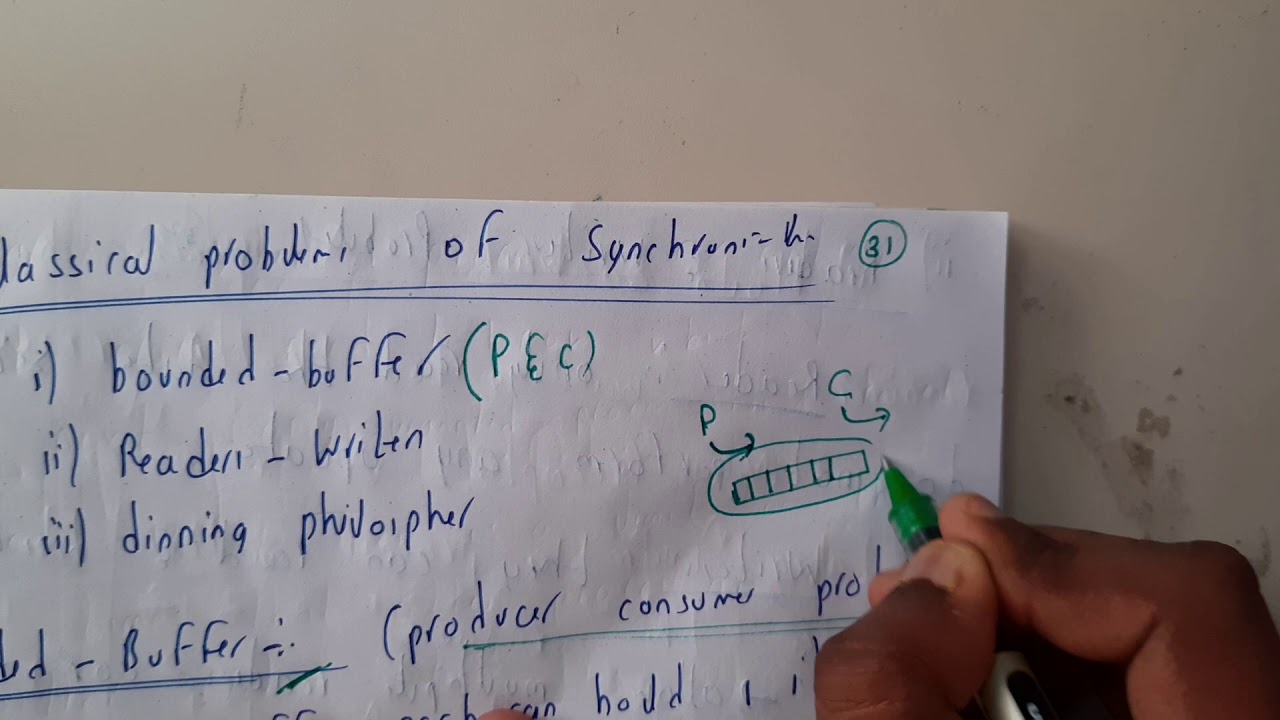 lassical problems of Synchroni-th. 31
i) bounded-buffer (P & C)
C
P
ii) Readers - Writers
iii) dinning philosipher
ed - Buffer :- (producer consumer pro
each can hould 1 i